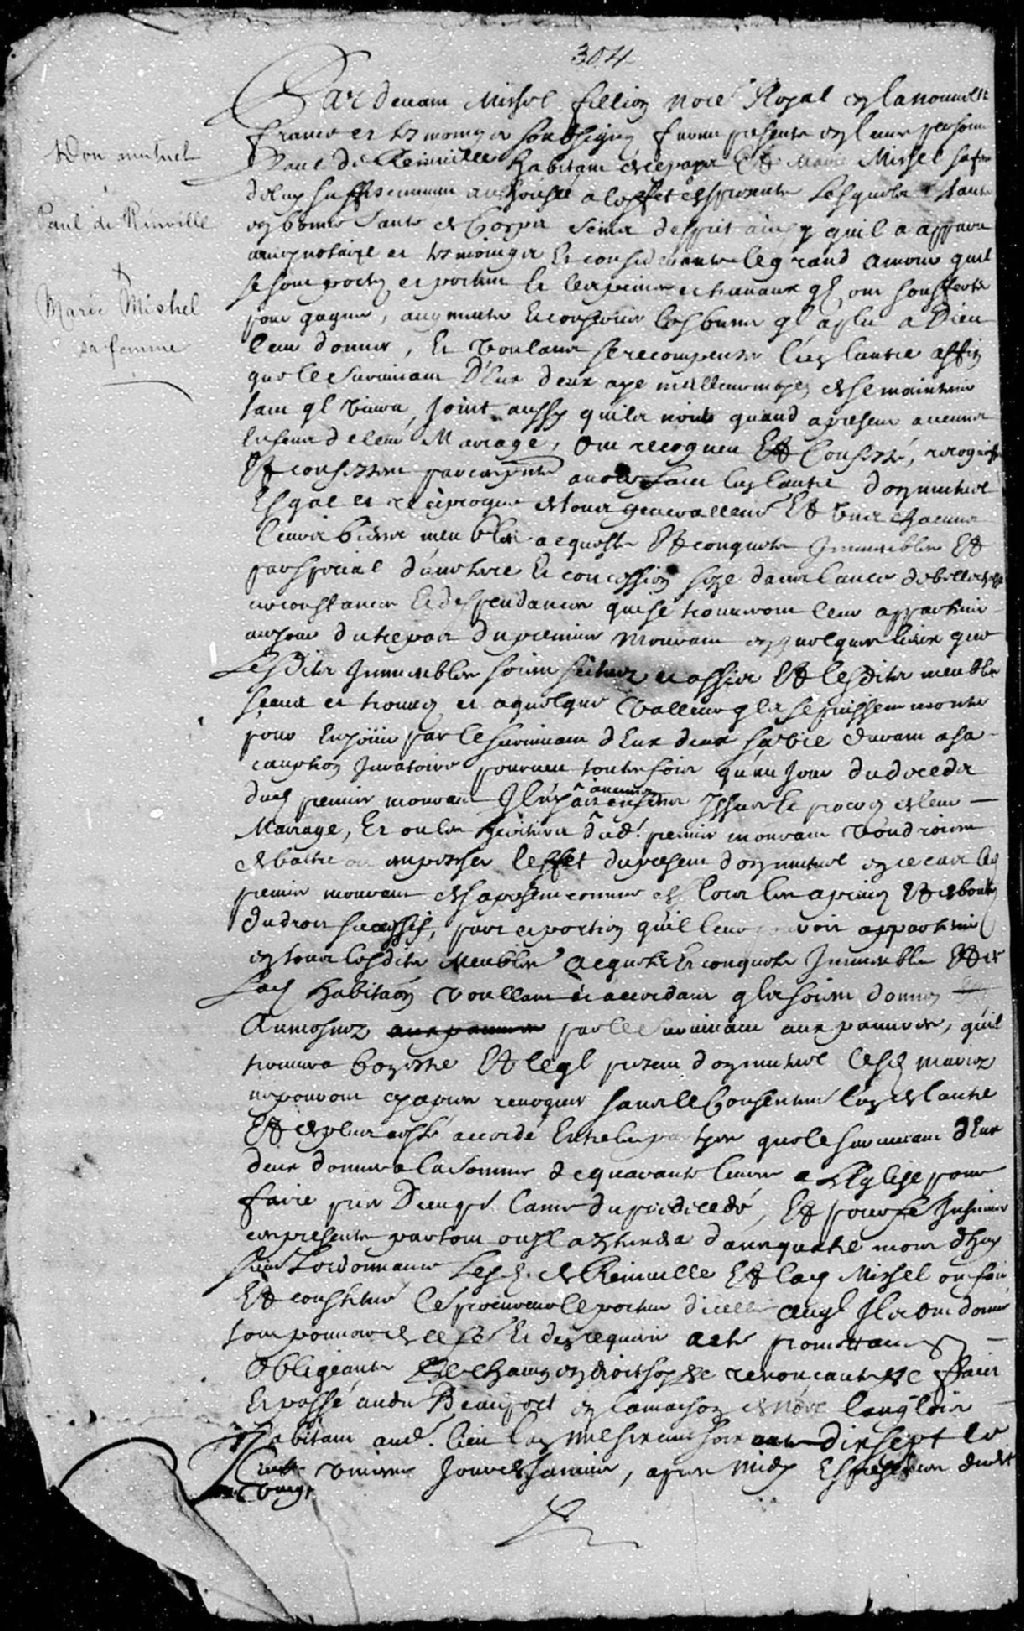 304
Don mutuel
Paul de Rinville
&
Marie Mishel
sa femme
Pardevant Mishel fillion Nore Royal en la nouvelle
france et tesmoings soubsignez furent presents en leurs personnes
Paul de Reinville habitant et Marie Mishel sa femme
de luy suffisemment authorisée a l'effet des presentes Lesquels estants
en bonne santé de Corps sains d'esprit ainsy quil a apparu
notaire et tesmoings Et considerants le grand amour quil
se sont portez et portent Et les peines et travaux qlz ont soufferts
pour gagner, augmenter Et conserver les biens ql a plu a Dieu
leur donner, Et voulans se recompenser l'un l'autre affin
que le survivant D'Eux deux aye meilleur moyen de se maintenir
tant ql vivra, Joint aussy quils n'ont quand a present aucuns
Enfans de leur Mariage, Ont recognu Et Confessé, recognoissent
Et confessent par ces presentes avoir fait l'un l'autre don mutuel
Esgal et reciproque de tous generallement Et un chacuns
leurs biens meubles acquests Et conquests Immeubles Et
par special d'une terre Et concession size dans l'ance de
circonstances Et despendances qui se trouveront leur appartenir
au jour du trepas du premier Mourant en quelques lieux que
Lesdits Immeubles soient scituez et assis Et lesdits meubles
sceus et trouvez et a quelque valleur qlz se puissent monter
pour En jouir par le survivant d'Eux deux sa vie durant a sa
caution Juratoire pourveu toutesfois qu'au Jour du deceds
dud premier mourant Il n'y ait aucuns enfans Issus Et procréez de leur
Mariage, Et ou les heritiers dud. premier mourant voudroient
debatre ou empescher l'effet du present don mutuel en ce cas led
premier mourant des a present comme des lors les a privez Et deboutez
du droit successif, part et portion quil leur pouroit appartenir
en tous lesdits Meubles acquests Et conquests Immeubles Et de
Lad habitaon voullant Et accordant qlz soient donnez
Aumosnez par le survivant aux pauvres, quil
trouvera bon estre Et leql present don mutuel lesd mariez
ne pouront cy apres revoquer sans le Consentemt l'un de l'autre
Et de plus a esté accordé Entre les parties que le survivant d'Eux
deux donnera la somme de quarante livres a l'Eglise pour
faire prier Dieu pr l'ame du predecedé, Et pour fe Insinuer
ces presentes partout ou Il a dans quatre mois d'huy
suivt l'ordonnance Lesd. de Reinville Et lad Mishel ont fait
Et constitué leur procureur le porteur d'icelles auql Ils ont donné
tout pouvoir de ce fe Et d'en requerir acte promettans
Obligeants Et chacun en droit soy &c renonçants &c fait
Et passé au du Beauport en la maison de Noel langlois
habitant aud. lieu l'an mil six cent soixante dix sept le
vingt unieme Jour de Janvier, apres midy Es presences du dit
vingt